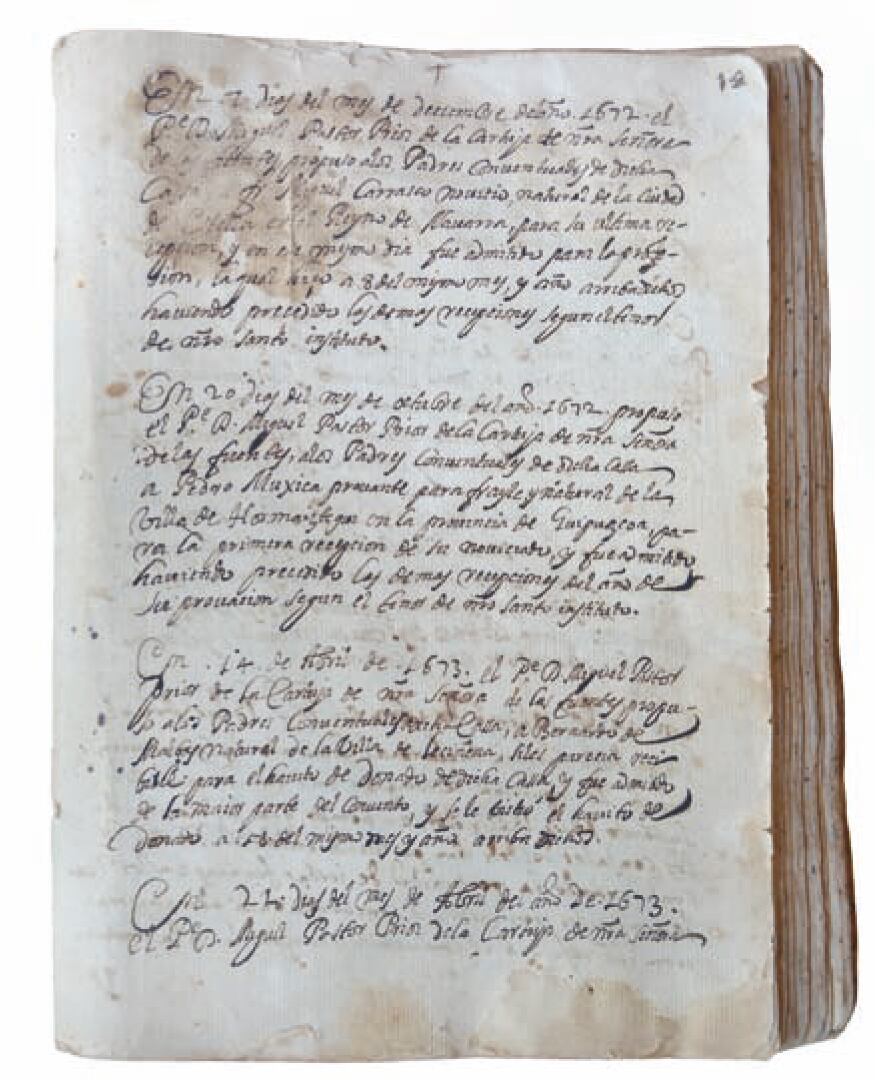 ✝
18
En 2 dias del mes de decembre del año 1672. el
Pe. D. Miguel Pastor Prior de la Cartuja de nra Señora
de las fuentes propuso a los Padres Conventuales de dicha
Casa Miguel Carrasco novicio natural de la Ciudad
de en el Reyno de Navarra para su ultima re-
cepcion, y en el mismo dia fue admitido para la profe-
sion, la qual hizo a 8 del mismo mes, y año arriba dichos
haviendo precedido las demas recepciones segun el tenor
de nro santo instituto.
En 20 dias del mes de octubre del año. 1672. propuso
el Pe. D. Miguel Pastor Prior de la Cartuja de nra Señora
de las fuentes, a los Padres Conventuales de dicha Casa
a Pedro Muxica provante para frayle y natural de la
Villa de en la provincia de Guipuzcoa, pa-
ra la primera recepcion de su noviciado, y fue admitido,
haviendo precedido las demas recepciones del año de
su provacion segun el tenor de nro santo instituto.
En. 14 de Abril de 1673. el Pe. D. Miguel Pastor
Prior de la Cartuja de nra Señora de las fuentes propu-
so a los Padres Conventuales de dicha Casa, a Bernardo de
natural de la Villa de Leciñena, si les parecia reci-
bille para el havito de Donado de dicha Casa, y fue admitido
de la maior parte del Convento, y se le bistió el havito de
Donado a del mismo mes y año arriba dichos.
En 22 dias del mes de Abril del año de 1673.
el Pe. D. Miguel Pastor Prior de la Cartuja de nra Señora